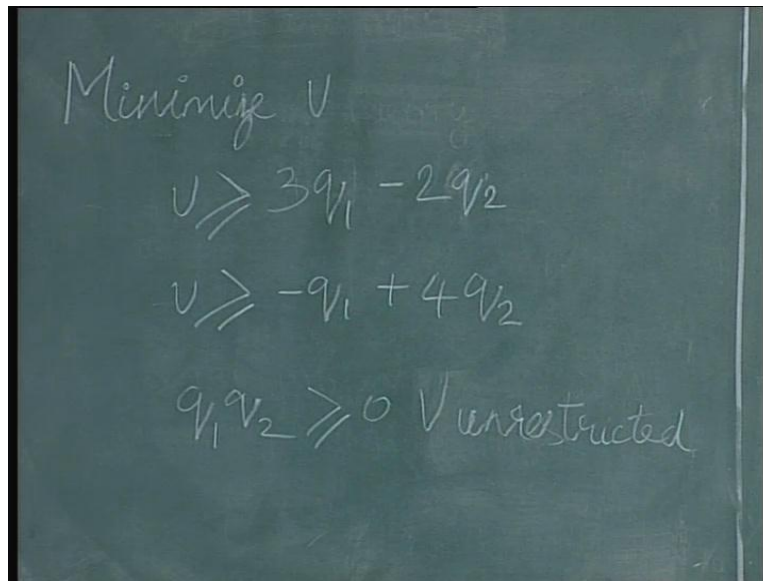 Minimize v
v ≥ 3q₁ - 2q₂
v ≥ -q₁ + 4q₂
q₁ q₂ ≥ 0 V unrestricted